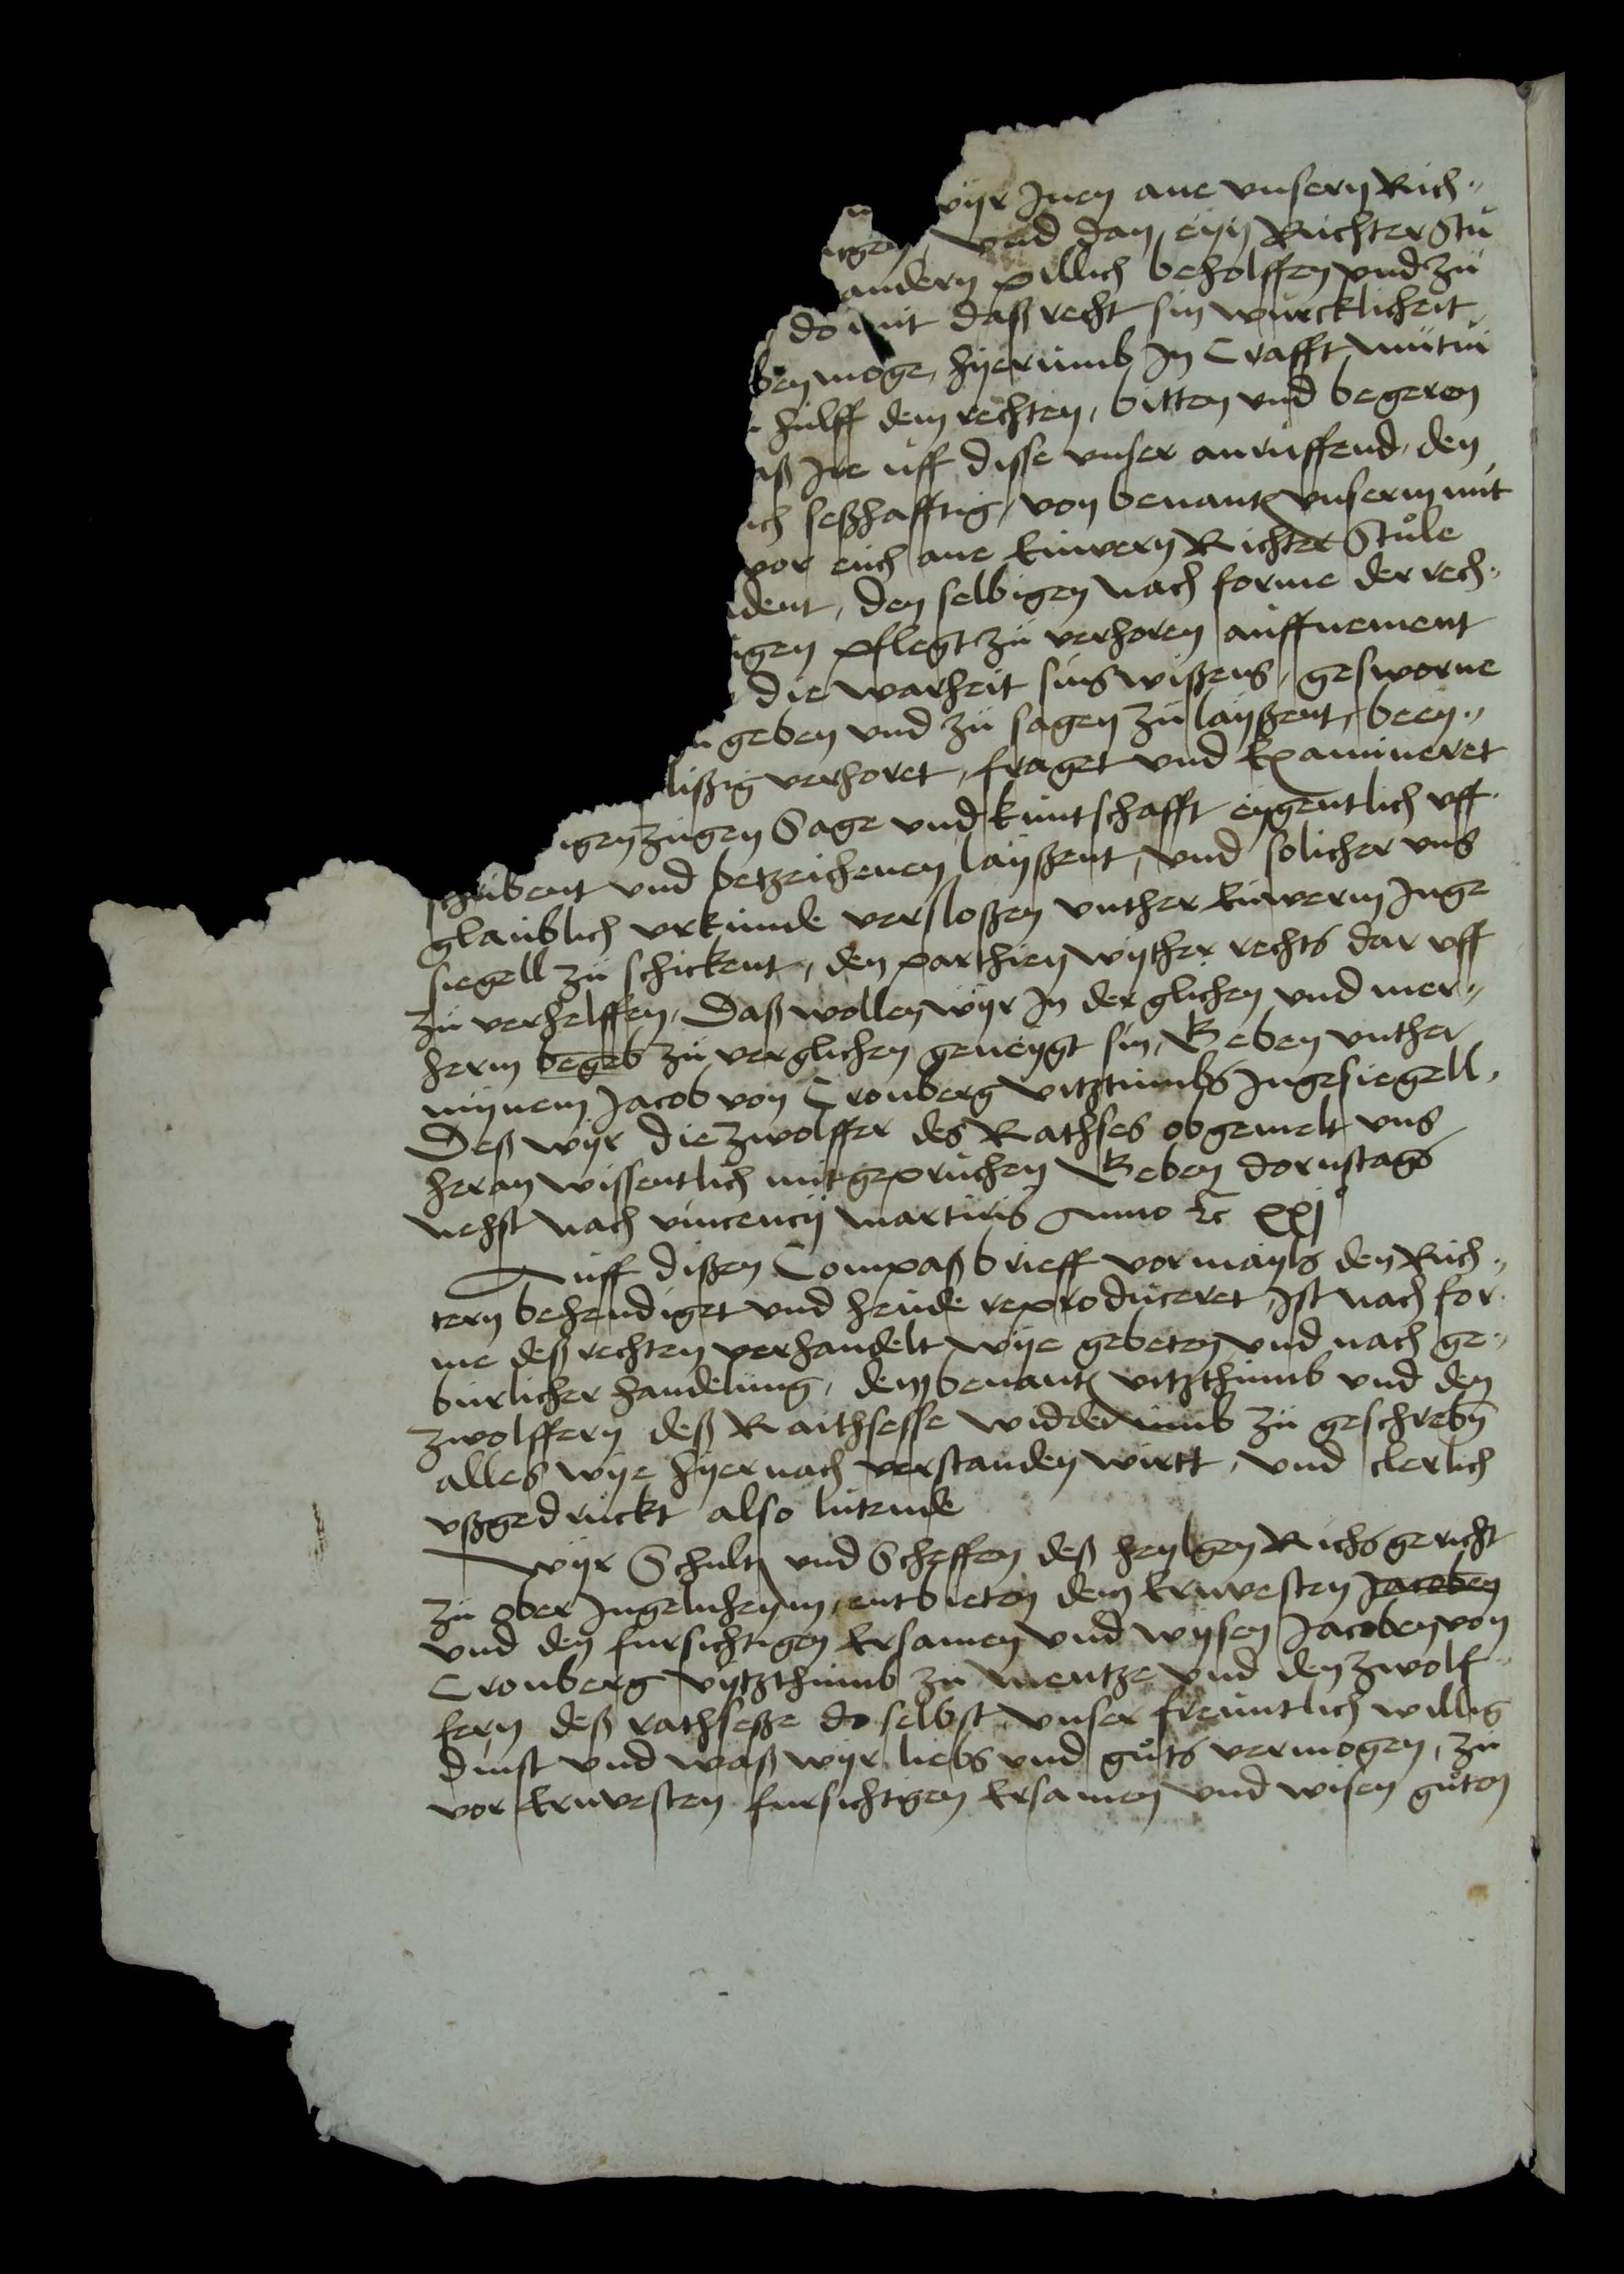 wyr Inen ane vnsern Rich„
tgen, vnd dan eyn Richter Stu
andern pillich beholffen vnd zu
do mit daß recht sin wurcklicheit
ben moge, hyerumb In Crafft mutui
hulff dem rechten, bitten vnd begeren
aß Ire uff disse vnser anruffend, den
ich seßhafftig, von benant vnserm mit
vor euch ane Euwern Richter Stule
dent, den selbigen nach forme der rech„
igen pflegt zu verhoren auffnement
die warheit sins wißens, gesworne
geben vnd zu sagen zu layßent, beey„
lißig verhoret, fraget vnd Examineret
igen zugen Sage vnd kuntschafft eygentlich vff
schribent vnd betzeichenen layßent, vnd solicher vns
glaublich vrkunde versloßen vnther Euwerm Inge
siegell zu schickent, den parthien wyther rechts dar vff
zu verhelffen, Daß wollen wyr In der glichen vnd mer„
herm begeb zu verglichen geneygt sin, Geben vnther
mynem Jacob von Cronberg vitztumbs Ingesiegell,
Deß wyr die zwolffer des Rathses obgemelt vns
heran wissentlich mit gepruchen Geben dornstags
nehst nach vincencij martiris Anno &c xxj°
Auff dißen Compaß brieff vormayls den Rich„
tern behendiget vnd heude reproduceret, Ist nach for
me deß rechten verhandelt wye gebeten vnd nach ge„
burlicher handelung, dem benant vitzthumb vnd den
zwolffern deß Raithsesse widderumb zu geschrebn
alles wye hyernach verstanden wirtt, vnd clerlich
vßgedruckt also lutende
Wyr Schult vnd Scheffen deß heylgen Richs gericht
zu Ober Ingelnheym, entbieten dem Ernvesten Jacoben
vnd den fursichtigen Ersamen vnd wysen Jacoben von
Cronberg vytzthumb zu Mentze vnd den zwolf„
fern deß rathseße do selbst vnser freuntlich willig
dinst vnd waß wyr liebs vnd guts vermogen, zu
vor Ernvesten fursichtigen Ersamen vnd wisen guten